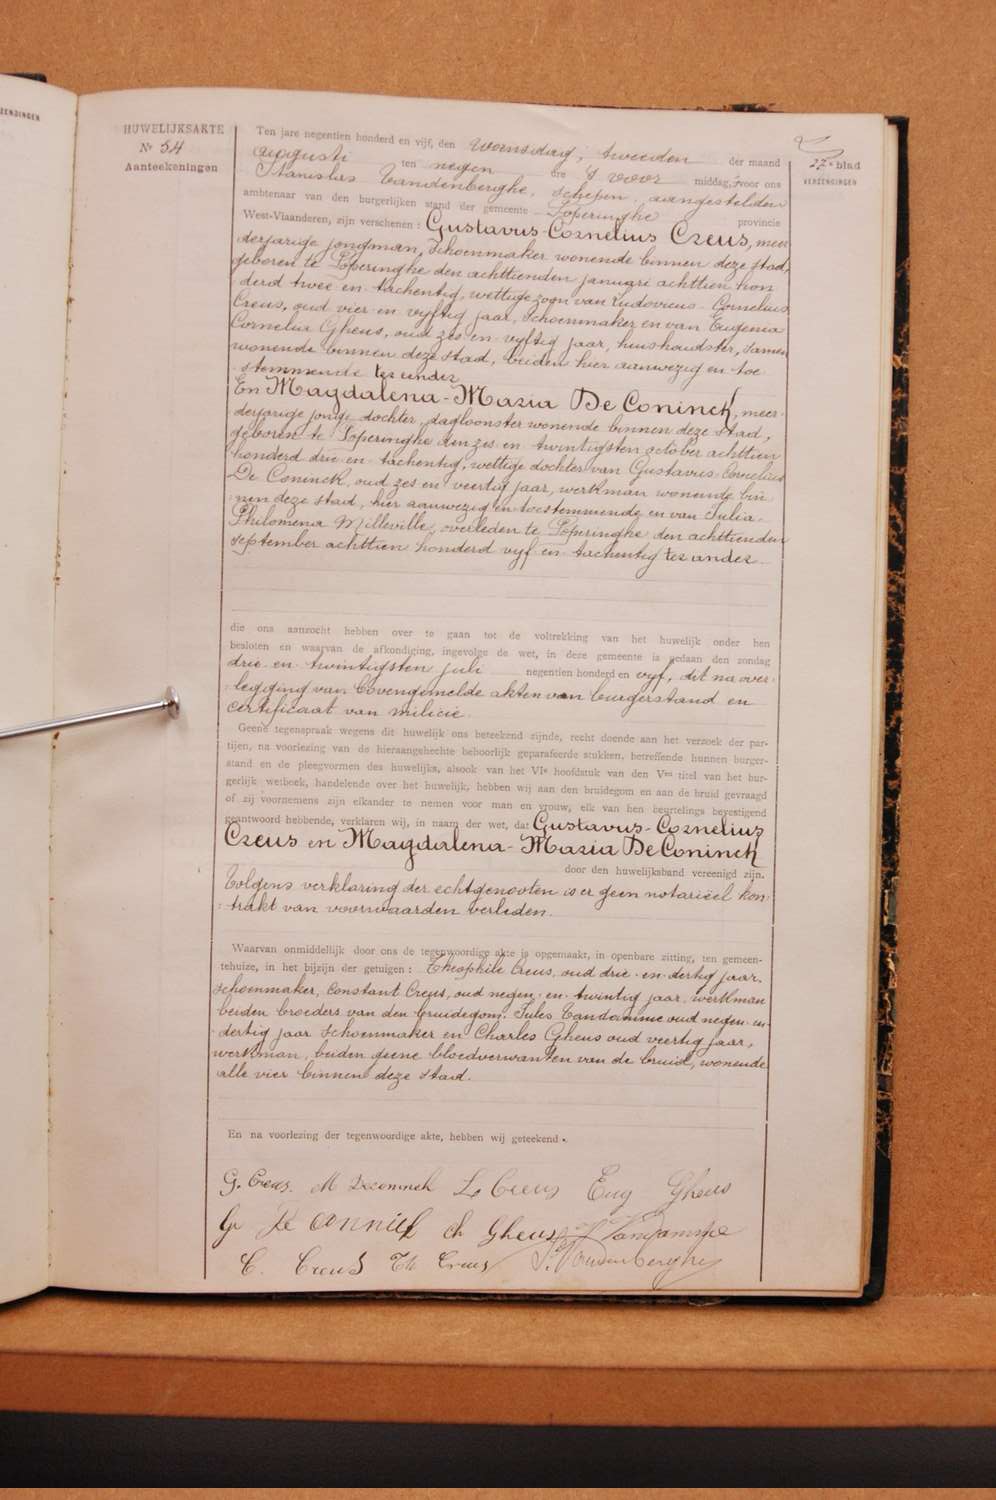 ZENDINGEN
HUWELIJKSAKTE
No 54
Aanteekeningen
27e blad
VERZENDINGEN
Ten jare negentien honderd en vijf, den woensdag, tweeden der maand
augusti ten negen ure 's voor middag, voor ons
Stanislas Vandenberghe, schepen, aangestelden
ambtenaar van den burgerlijken stand der gemeente Poperinghe provincie
West-Vlaanderen, zijn verschenen : Gustavus-Cornelius Creus, meer
derjarige jongman, schoenmaker wonende binnen deze stad,
geboren te Poperinghe den achttienden januari achttien hon
derd twee en tachentig, wettige zoon van Ludovicus-Cornelius
Creus, oud vier en vyftig jaar, schoenmaker en van Eugenia
Cornelia Gheus, oud zes en vyftig jaar, huishoudster, samen
wonende binnen deze stad, beiden hier aanwezig en toe
stemmende ter eender
En Magdalena-Maria De Coninck, meer-
derjarige jonge dochter, dagloonster wonende binnen deze stad,
geboren te Poperinghe den zes en twintigsten october achttien
honderd drie en tachentig, wettige dochter van Gustavus Cornelius
De Coninck, oud zes en veertig jaar, werkman wonende bin
nen deze stad, hier aanwezig en toestemmende en van Julia-
Philomena Milleville, overleden te Poperinghe den achttienden
september achttien honderd vyf en tachentig ter ander
die ons aanzocht hebben over te gaan tot de voltrekking van het huwelijk onder hen
besloten en waarvan de afkondiging, ingevolge de wet, in deze gemeente is gedaan den zondag
drie en twintigsten juli negentien honderd en vyf, dit na over-
legging van bovengemelde akten van burgerstand en
certificaat van milicie.
Geene tegenspraak wegens dit huwelijk ons beteekend zijnde, recht doende aan het verzoek der par-
tijen, na voorlezing van de hieraangehechte behoorlijk geparafeerde stukken, betreffende hunnen burger-
stand en de pleegvormen des huwelijks, alsook van het VIe hoofdstuk van den Ven titel van het bur-
gerlijk wetboek, handelende over het huwelijk, hebben wij aan den bruidegom en aan de bruid gevraagd
of zij voornemens zijn elkander te nemen voor man en vrouw, elk van hen beurtelings bevestigend
geantwoord hebbende, verklaren wij, in naam der wet, dat Gustavus-Cornelius
Creus en Magdalena-Maria De Coninck
door den huwelijksband vereenigd zijn.
Volgens verklaring der echtgenooten is er geen notariëel kon-
trakt van voorwaarden verleden.
Waarvan onmiddellijk door ons de tegenwoordige akte is opgemaakt, in openbare zitting, ten gemeen-
tehuize, in het bijzijn der getuigen : Theophile Creus, oud drie en dertig jaar,
schoenmaker, Constant Creus, oud negen en twintig jaar, werkman
beiden broeders van den bruidegom. Jules Vandamme oud negen en
dertig jaar schoenmaker en Charles Gheus oud veertig jaar,
werkman, beiden geene bloedverwanten van de bruid, wonende
alle vier binnen deze stad.
En na voorlezing der tegenwoordige akte, hebben wij geteekend.
G. Creus. M Deconinck L. Creus Eug Gheus
G De Connick Ch Gheus J Vandamme
C. Creus Th Creus S. Vandenberghe